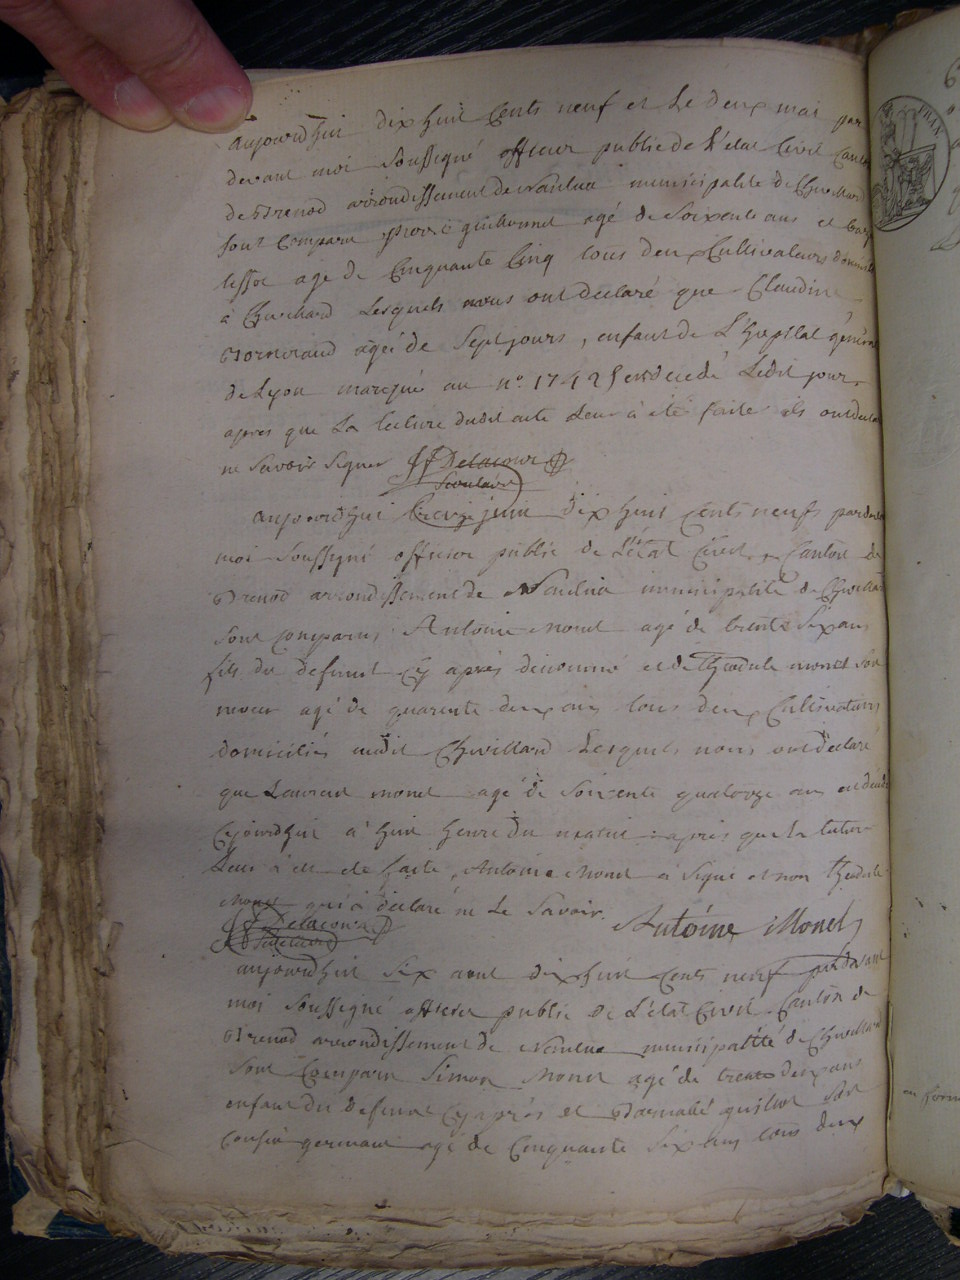 aujourdhui dix huit Cents neuf et Le deux mai par
devant moi soussigné officier public de L'état Civil Canton
de Brenod arrondissement de Nantua municipalité de Chevillard
sont Comparu pierre guillermet agé de soixente ans et
agé de Cinquante Cinq tous deux Cultivateurs domicilié
à Chevillard Lesquels nous ont declaré que Claudine
agée de sept jours, enfant de L'hopital général
de Lyon marqué au n° 17425 est decedé Ledit jour,
apres que La lecture dudit acte Leur à eté faite ils ont declaré
ne savoir signer Delacour
Secretaire
aujourdhui juin dix huit Cents neufs par devant
moi soussigné officier public de L'état Civil Canton de
Brenod arrondissement de Nantua municipalité de Chevillard
sont comparus Antoine monet agé de trente six ans
fils du defunt cy après denommé et de Théodule monet son
agé de quarente deux ans tous deux Cultivateurs
domiciliés audit Chevillard Lesquels nous ont déclaré
que Laurent monet agé de soixente quatorze ans est décédé
Cejourdhui à huit heure du matin apris que la lecture
Leur à eté faite, Antoine Monet à signé et non théodule
Monet qui à déclaré ne Le savoir. Antoine Monet
Delacour
Secretaire
aujourdhui six aout dix huit Cents neuf par devant
moi soussigné officier public de L'état Civil Canton de
Brenod arrondissement de Nantua municipalité de Chevillard
sont Comparu Simon Monet agé de trente deux ans
enfant du defunt Cy après et guillot son
Cousin germain agé de Cinquante six ans tous deux